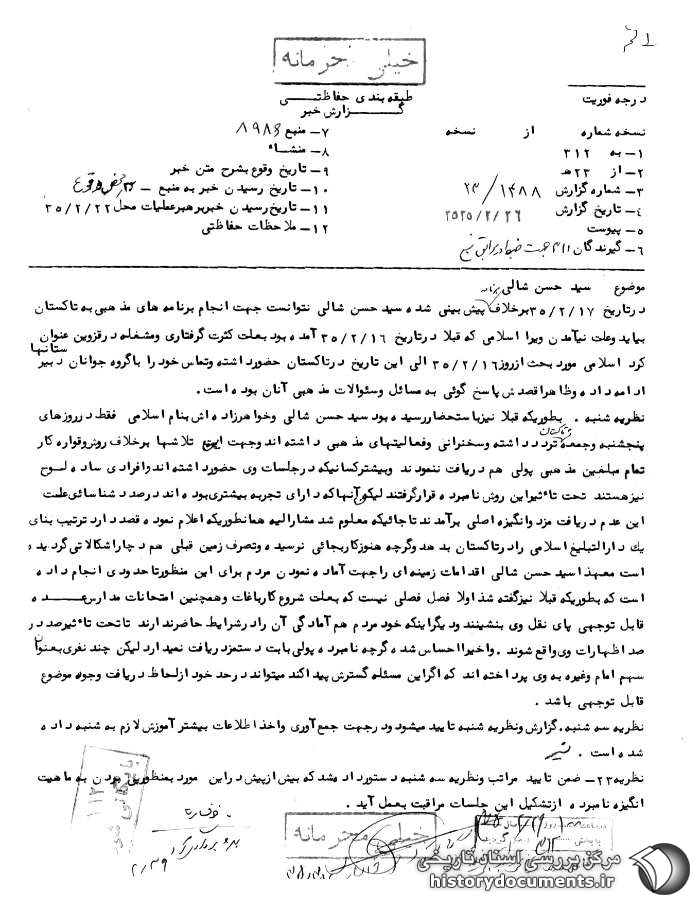 خیلی محرمانه
درجه فوریت
طبقه بندی حفاظتی
گزارش خبر
نسخه شماره از نسخه
۱- به ۳۱۲
۲- از ۲۳ هـ
۳- شماره گزارش ۲۳/۱۴۸۸
۴- تاریخ گزارش ۲۵۳۵/۲/۲۶
۵- پیوست
۶- گیرندگان
۷- منبع ۸۹۸۶
۸- منشاء
۹- تاریخ وقوع بشرح متن خبر
۱۰- تاریخ رسیدن خبر به منبع -
۱۱- تاریخ رسیدن خبر برهبرعملیات محل ۳۵/۲/۲۲
۱۲- ملاحظات حفاظتی
موضوع سید حسن شالی
درتاریخ ۳۵/۲/۱۷ برخلاف پیش بینی شده سید حسن شالی نتوانست جهت انجام برنامه های مذهبی به تاکستان
بیاید وعلت نیآمدن ویرا اسلامی که قبلا درتاریخ ۳۵/۲/۱۶ آمده بود بعلت کثرت گرفتاری ومشغله درقزوین عنوان
کرد اسلامی مورد بحث ازروز ۳۵/۲/۱۶ الی این تاریخ درتاکستان حضورداشته وتماس خود را باگروه جوانان دبیرستانها
ادامه داده وظاهراقصدش پاسخ گوئی به مسائل وسئوالات مذهبی آنان بوده است.
نظریه شنبه . بطوریکه قبلا نیزباستحضاررسیده بود سید حسن شالی وخواهرزاده اش بنام اسلامی فقط درروزهای
پنجشنبه وجمعه بتاکستان تردد داشته وسخنرانی وفعالیتهای مذهبی داشته اند وجهت این تلاشها برخلاف روش وقواره کار
تمام مبلغین مذهبی پولی هم دریافت ننمودند وبیشترکسانیکه درجلسات وی حضورداشته اند وافرادی ساده لوح
نیزهستند تحت تاثیراین روش نامبرده قرارگرفتند لیکن آنهاکه دارای تجربه بیشتری بوده اند درصدد شناسائی علت
این عدم دریافت مزد وانگیزه اصلی برآمدند تاجائیکه معلوم شد مشارالیه همانطوریکه اعلام نموده قصد دارد ترتیب بنای
یک دارالتبلیغ اسلامی رادرتاکستان بدهد وگرچه هنوزکاربجائی نرسیده وتصرف زمین قبلی هم دچاراشکالاتی گردیده
است معهذا سید حسن شالی اقدامات زمینه ای راجهت آماده نمودن مردم برای این منظورتاحدودی انجام داده
است که بطوریکه قبلا نیزگفته شد اولا فصل فصلی نیست که بعلت شروع کارباغات وهمچنین امتحانات مدارس عده
قابل توجهی پای نقل وی بنشینند ودیگراینکه خود مردم هم آمادگی آن رادرشرایط حاضرندارند تاتحت تاثیرصددر
صد اظهارات وی واقع شوند . واخیرااحساس شده گرچه نامبرده پولی بابت دستمزد دریافت نمیدارد لیکن چند نفری بعنوان
سهم امام وغیره به وی پرداخته اند که اگراین مسئله گسترش پیداکند میتواند درحد خود ازلحاظ دریافت وجوه موضوع
قابل توجهی باشد .
نظریه سه شنبه. گزارش ونظریه شنبه تایید میشود ودرجهت جمع آوری واخذ اطلاعات بیشترآموزش لازم به شنبه داده
شده است .
نظریه ۲۳- ضمن تایید مراتب ونظریه سه شنبه دستورداده شد که بیش ازپیش دراین مورد بمنظورپی بردن به ماهیت
انگیزه نامبرده ازتشکیل این جلسات مراقبت بعمل آید .
خیلی محرمانه
مرکز بررسی اسناد تاریخی
historydocuments.ir